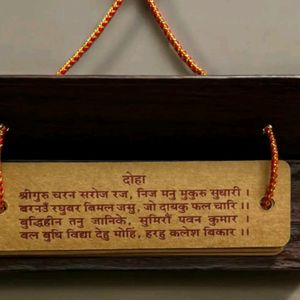 दोहा
श्रीगुरु चरन सरोज रज, निज मनु मुकुरु सुधारी ।
बरनउँ रघुबर बिमल जसु, जो दायकु फल चारि ।।
बुद्धिहीन तनु जानिके, सुमिरौं पवन कुमार ।
बल बुधि विद्या देहु मोहि, हरहु कलेश विकार ।।